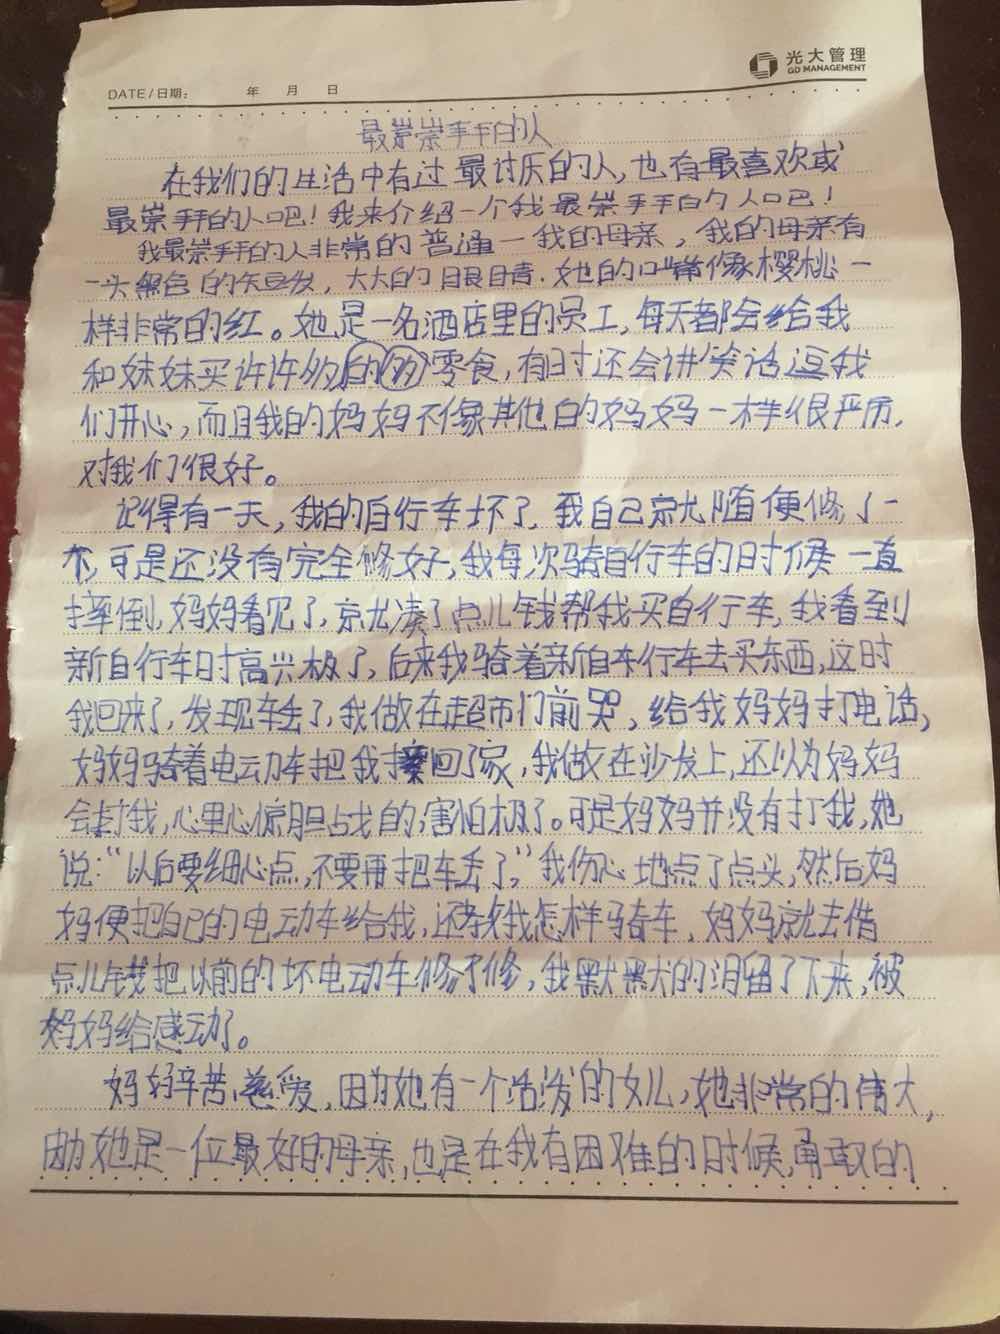 光大管理
GD MANAGEMENT
DATE/日期： 年 月 日
最崇拜的人
在我们的生活中有过最讨厌的人，也有最喜欢或
最崇拜的人吧！我来介绍一个我最崇拜的人吧！
我最崇拜的人非常的普通一我的母亲，我的母亲有
一头黑色的头发，大大的眼睛．她的嘴像樱桃一
样非常的红。她是一名酒店里的员工，每天都会给我
和妹妹买许许多的多零食，有时还会讲笑话逗我
们开心，而且我的妈妈不像其他的妈妈一样很严厉，
对我们很好。
记得有一天，我的自行车坏了．我自己就随便修了一
下，可是还没有完全修好，我每次骑自行车的时候一直
摔倒，妈妈看见了，就凑了点儿钱帮我买自行车，我看到
新自行车时高兴极了，后来我骑着新自车行车去买东西，这时
我回来了，发现车丢了，我做在超市门前哭，给我妈妈打电话，
妈妈骑着电动车把我接回了家，我做在沙发上，还以为妈妈
会打我，心里心惊胆战的，害怕极了。可是妈妈并没有打我，她
说：“以后要细心点，不要再把车丢了，”我伤心地点了点头，然后妈
妈便把自己的电动车给我，还教我怎样骑车，妈妈就去借
点儿钱把以前的坏电动车修了修，我默默的泪留了下来，被
妈妈给感动了。
妈妈辛苦，慈爱，因为她有一个活泼的女儿，她非常的伟大，
因为她是一位最好的母亲，也是在我有困难的时候，勇敢的